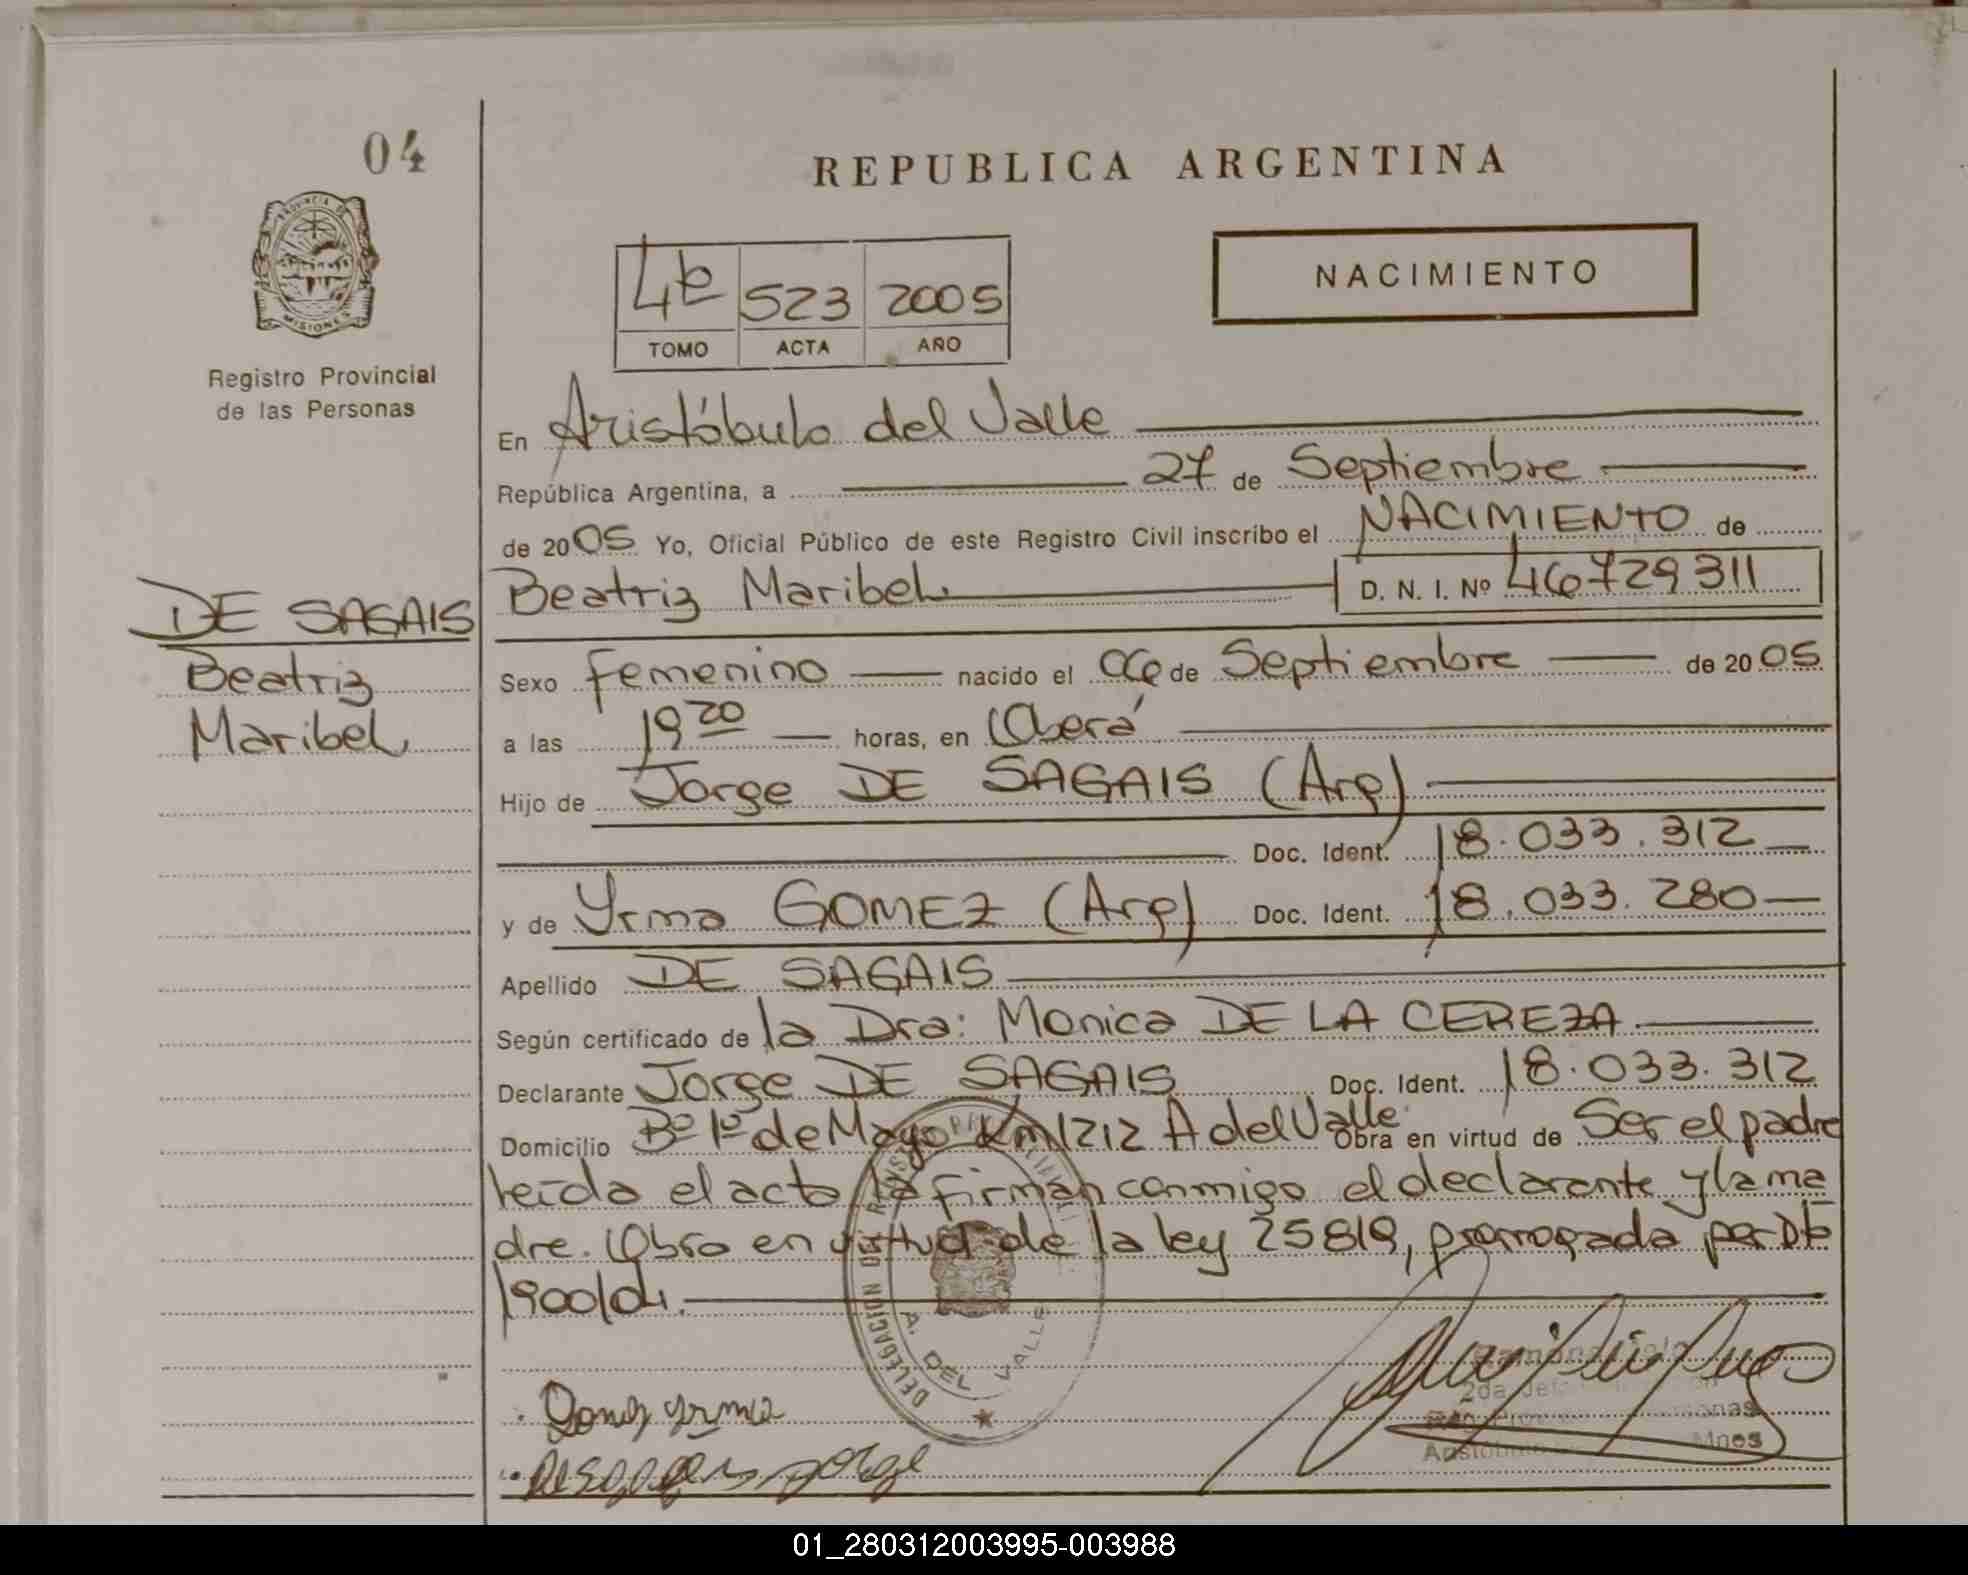 04
REPUBLICA ARGENTINA
PROVINCIA DE
MISIONES
Registro Provincial
de las Personas
NACIMIENTO
523 2005
TOMO ACTA AÑO
En Aristóbulo del Valle
República Argentina, a 27 de Septiembre
de 2005 Yo, Oficial Público de este Registro Civil inscribo el NACIMIENTO de
DE SAGAIS
Beatriz
Maribel
Beatriz Maribel D. N. I. Nº 46729311
Sexo femenino nacido el 06 de Septiembre de 2005
a las 19 20 horas, en Oberá
Hijo de Jorge DE SAGAIS (Arg)
Doc. Ident. 18.033.312
y de Yrma GOMEZ (Arg) Doc. Ident. 18.033.280
Apellido DE SAGAIS
Según certificado de la Dra: Monica DE LA CEREZA
Declarante Jorge DE SAGAIS Doc. Ident. 18.033.312
Domicilio Bº 1º de Mayo Km 1212 A del Valle Obra en virtud de Ser el padre
leída el acta la firman conmigo el declarante y la ma
dre. Obro en virtud de la ley 25819, prorrogada por Dto
1900/04.
DELEGACION DEL REGISTRO
A. DEL VALLE
Gomez yrma
Desagais jorge
2da. Jef
Mnes
01_280312003995-003988